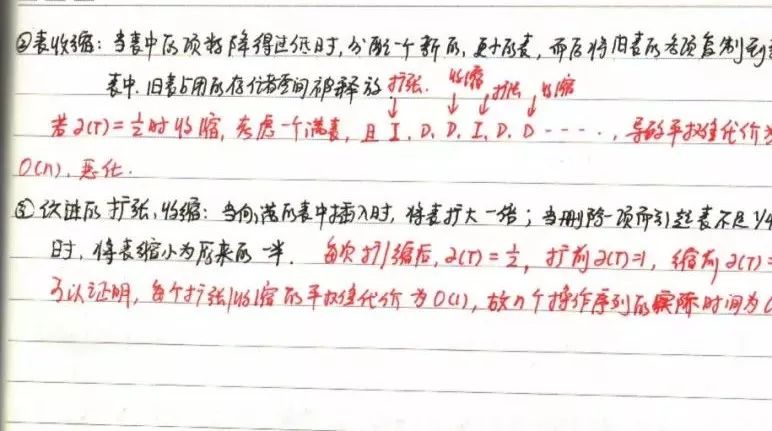 ②表收缩: 当表中的项数降得过低时, 分配一个新的, 更小的表, 而后将旧表的各项复制到新
表中. 旧表占用的存储空间被释放 扩张. 收缩 扩张 收缩
若α(T)=½时收缩, 考虑一个满表, 且 I. D. D. I. D. D ----, 导致平摊代价为
O(n), 恶化.
③ 改进的扩张, 收缩: 当向满的表中插入时, 将表扩大一倍; 当删除一项而引起表不足1/4
时, 将表缩小为原来的一半. 每次扩/缩后, α(T)=½, 扩前α(T)=1, 缩前α(T)=
可以证明, 每个扩张/收缩的平摊代价为O(1), 故n个操作序列的实际时间为